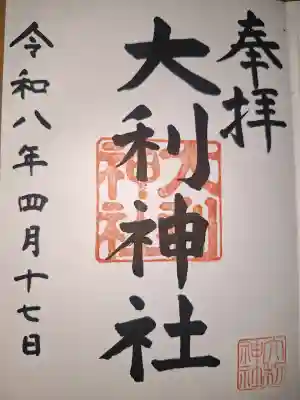 奉拝
大利神社
大利
神社
令和八年四月十七日
大利
神社